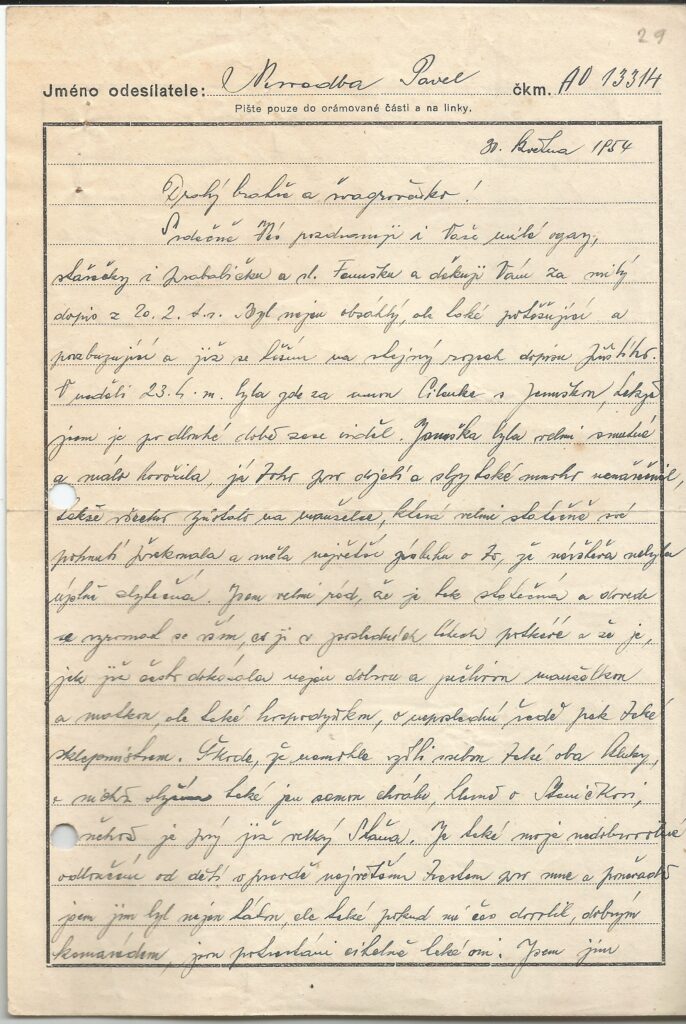 29
Jméno odesílatele: Pavel čkm. AO 13314
Pište pouze do orámované části a na linky.
30. května 1954
Drahý bratře a švagrovko!
Srdečně Vás pozdravuji i Vaše milé ogary,
stařečky i prababičku a sl. a děkuji Vám za milý
dopis z 20. 2. t. r. Byl nejen obsáhlý, ale také potěšující a
povzbuzující a již se těším na stejný rozsah dopisu příštího.
V neděli 23. t. m. byla zde za mnou Cilenka s Jenuškou, takže
jsem je po dlouhé době zase viděl. Jenuška byla velmi smutná
a málo hovořila, já toho pro dojetí a slzy také mnoho nenamluvil,
takže všechno zůstalo na manželce, která velmi statečně své
pohnutí překonala a měla největší zásluhu o to, že návštěva nebyla
úplně zbytečná. Jsem velmi rád, že je tak statečná a dovede
se vyrovnat se vším, co ji v posledních letech potkává a že je,
jak již často dokázala nejen dobrou a pečlivou manželkou
a matkou, ale také hospodyňkou, v neposlední řadě pak také
sklepmistrem. Škoda, že nemohla vzíti sebou také oba kluky,
o nichž slyším také jen samou chválu, hlavně o Staníčkovi,
z něhož je prý již velký Sláňa. Je také moje nedobrovolné
odloučení od dětí opravdě největším trestem pro mne a poněvadž
jsem jim byl nejen tátou, ale také pokud mi čas dovolil, dobrým
kamarádem, jsou potrestáni citelně také oni. Jsem jim